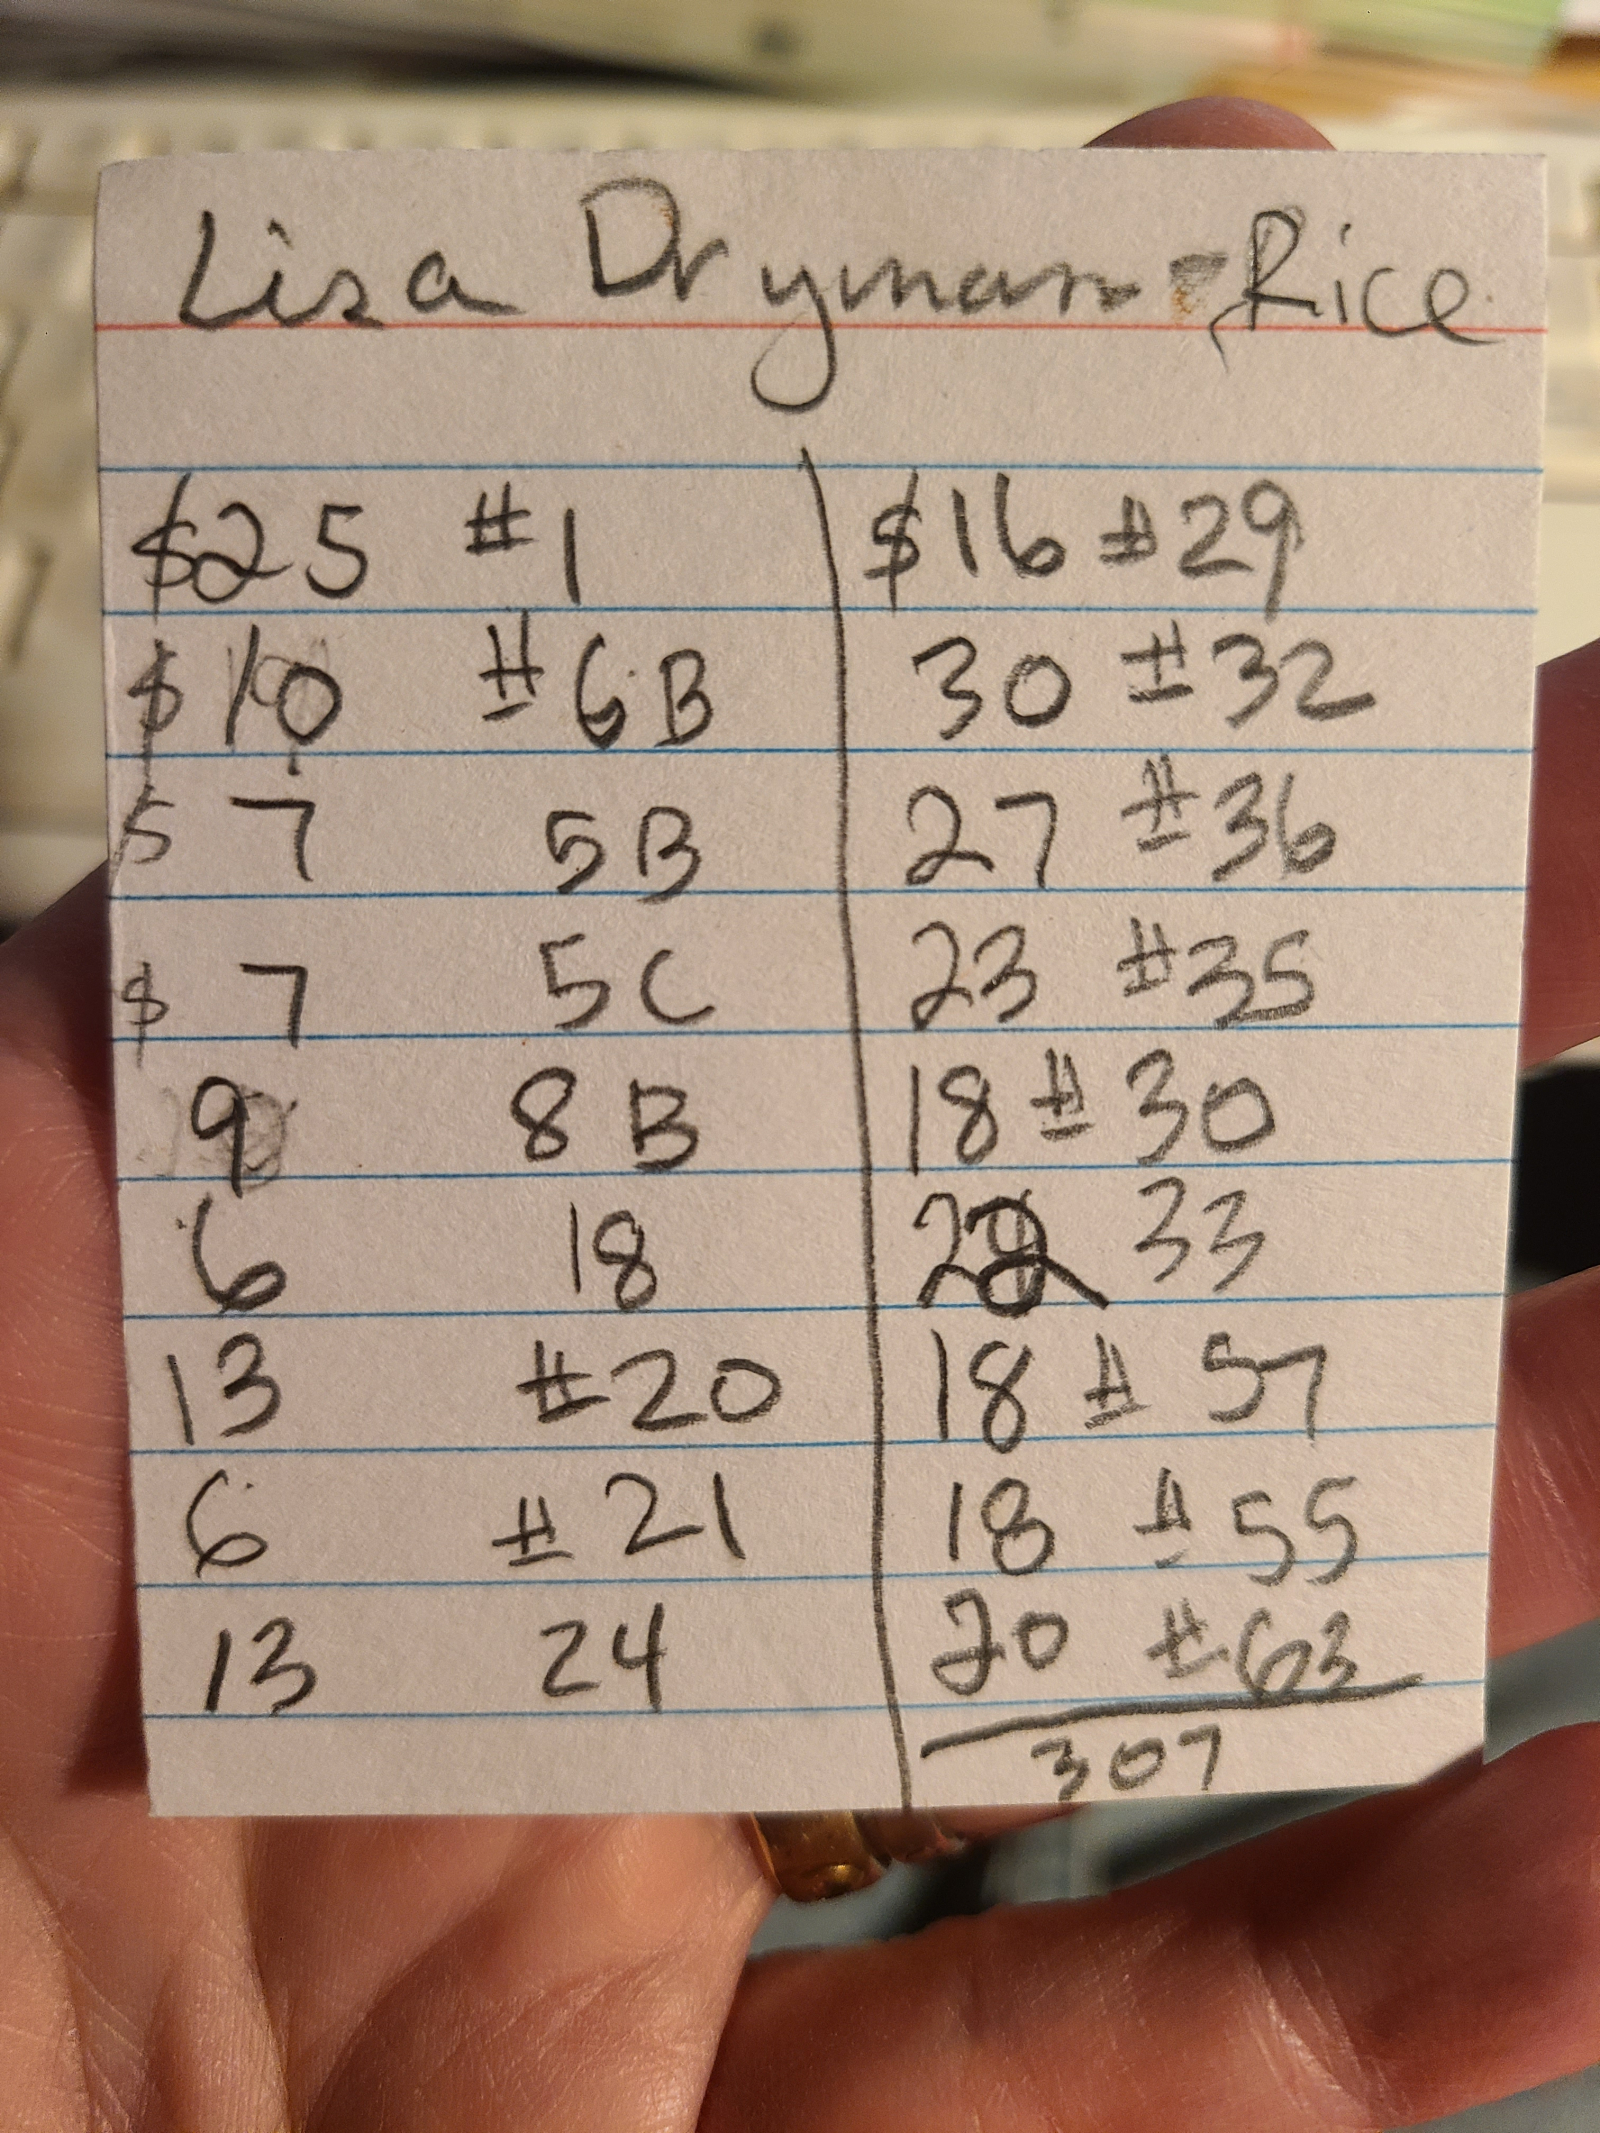 Lisa Dryman-Rice
$25 #1
$10 #6B
$7 5B
$7 5C
9 8B
6 18
13 #20
6 #21
13 24
$16 #29
30 #32
27 #36
23 #35
18 #30
22 33
18 # 57
18 #55
20 #63
307